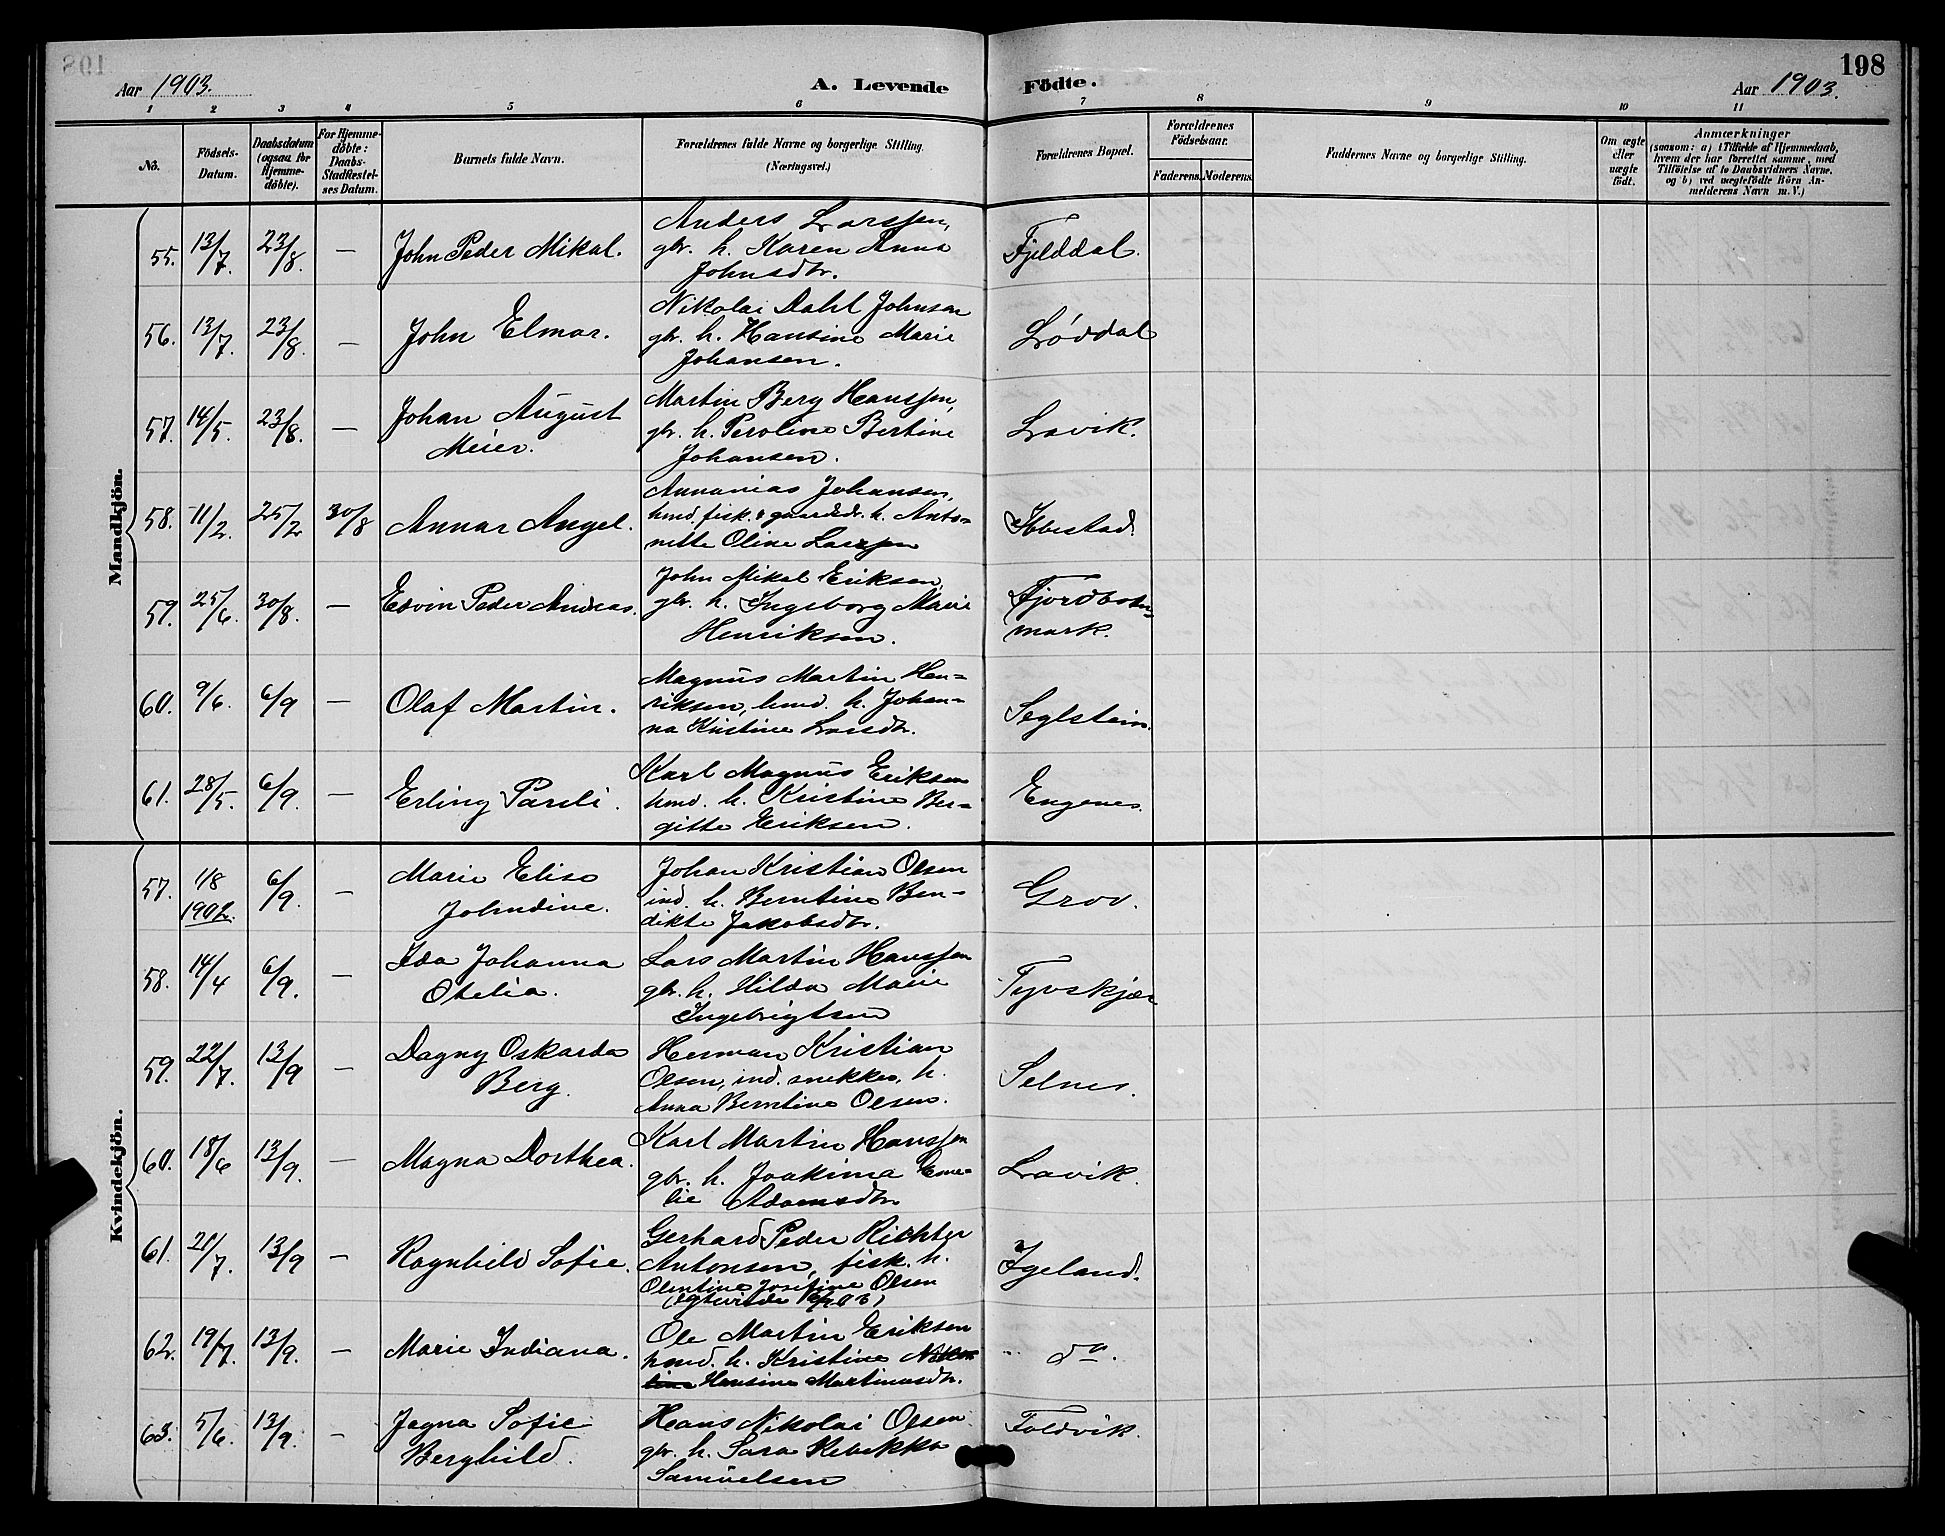 198
Aar 1903.
A. Levende Födte.
Aar 1903.
1 2 3 4 5 6 7 8 9 10 11
No.
Födsels-Datum.
Daabsdatum (ogsaa for Hjemme-döbte).
For Hjemme-döbte: Daabs-Stadfæstel-ses Datum.
Barnets fulde Navn.
Forældrenes fulde Navne og borgerlige Stilling.
(Næringsvei.)
Forældrenes Bopæl.
Forældrenes Födselsaar.
Faderens. Moderens.
Faddernes Navne og borgerlige Stilling.
Om ægte eller uægte födt.
Anmærkninger
(saasom: a) i Tilfælde af Hjemmedaab,
hvem der har forrettet samme, med
Tilföielse af to Daabsvidners Navne.
og b) ved uægtefödte Börn An-
melderens Navn m. V.)
Mandkjön.
55. 13/7. 23/8. — John Peder Mikal. Anders Larssen,
gbr. h. Karen Anna
Johnsdtr. Fjelddal.
56. 13/7. 23/8. — John Elmar. Nikolai Dahl Johnsen
gbr. h. Hansine Marie
Johansen. Løddal
57. 14/5. 23/8. — Johan August
Meier. Martin Berg Hanssen,
gbr. h. Peroline Bertine
Johansen. Lavik.
58. 11/2. 25/2 30/8 Annar Angel. Annanias Johansen,
hmd. fisk. & gaardsbr. h. Anto-
nette Oline Larssen Ibbestad.
59. 25/6. 30/8. — Edvin Peder Andreas. John Mikal Eriksen,
gbr. h. Ingeborg Marie
Henriksen. Fjordbotn-
mark.
60. 9/6. 6/9 — Olaf Martin. Magnus Martin Hen-
riksen, hmd. h. Johan-
na Kristine Larsdtr. Seglstein.
61. 28/5. 6/9. — Erling Pareli. Karl Magnus Eriksen
hmd. h. Kristine Ber-
gitte Eriksen. Engenes.
Kvindekjön.
57. 1/8
1902. 6/9. — Marie Elise
Johndine. Johan Kristian Olsen
ind. h. Berntine Ben-
dikte Jakobsdtr. Grov.
58. 14/4 6/9. — Ida Johanna
Otelia. Lars Martin Hanssen
gbr. h. Hilda Marie
Ingebrigtsen Tyvskjær
59. 22/7. 13/9 — Dagny Oskarda
Berg. Herman Kristian
Olsen, ind. snekker, h.
Anna Berntine Olsen. Selnes.
60. 18/6 13/9. — Magna Dorthea. Karl Martin Hanssen
gbr. h. Joakima Eme-
lie Adamsdtr. Lavik.
61. 21/7. 13/9 — Ragnhild Sofie. Gerhard Peder Richter
Antonsen, fisk. h.
Olentine Josefine Olsen
Igeland.
62. 19/7. 13/9. — Marie Indiana. Ole Martin Eriksen
hmd. h. Kristine
Hansine Martinusdtr. do.
63. 5/6. 13/9. — Jagna Sofie
Berghild. Hans Nikolai Olsen
gbr. h. Sara Rebekka
Samuelsen Foldvik.